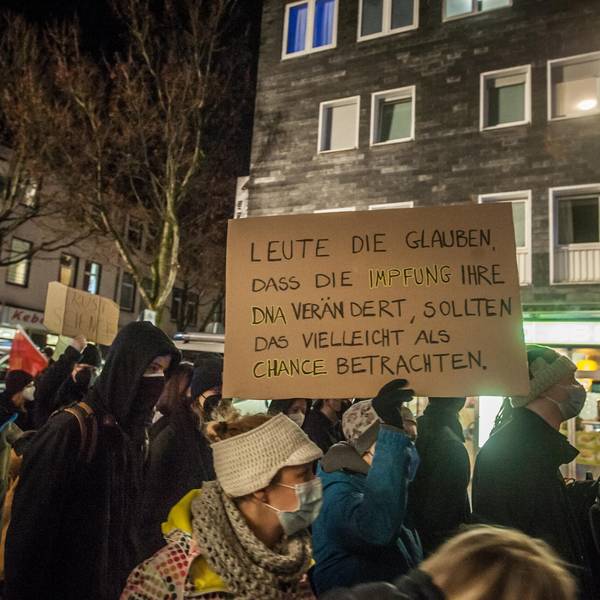 LEUTE DIE GLAUBEN,
DASS DIE IMPFUNG IHRE
DNA VERÄNDERT, SOLLTEN
DAS VIELLEICHT ALS
CHANCE BETRACHTEN.
Kebe